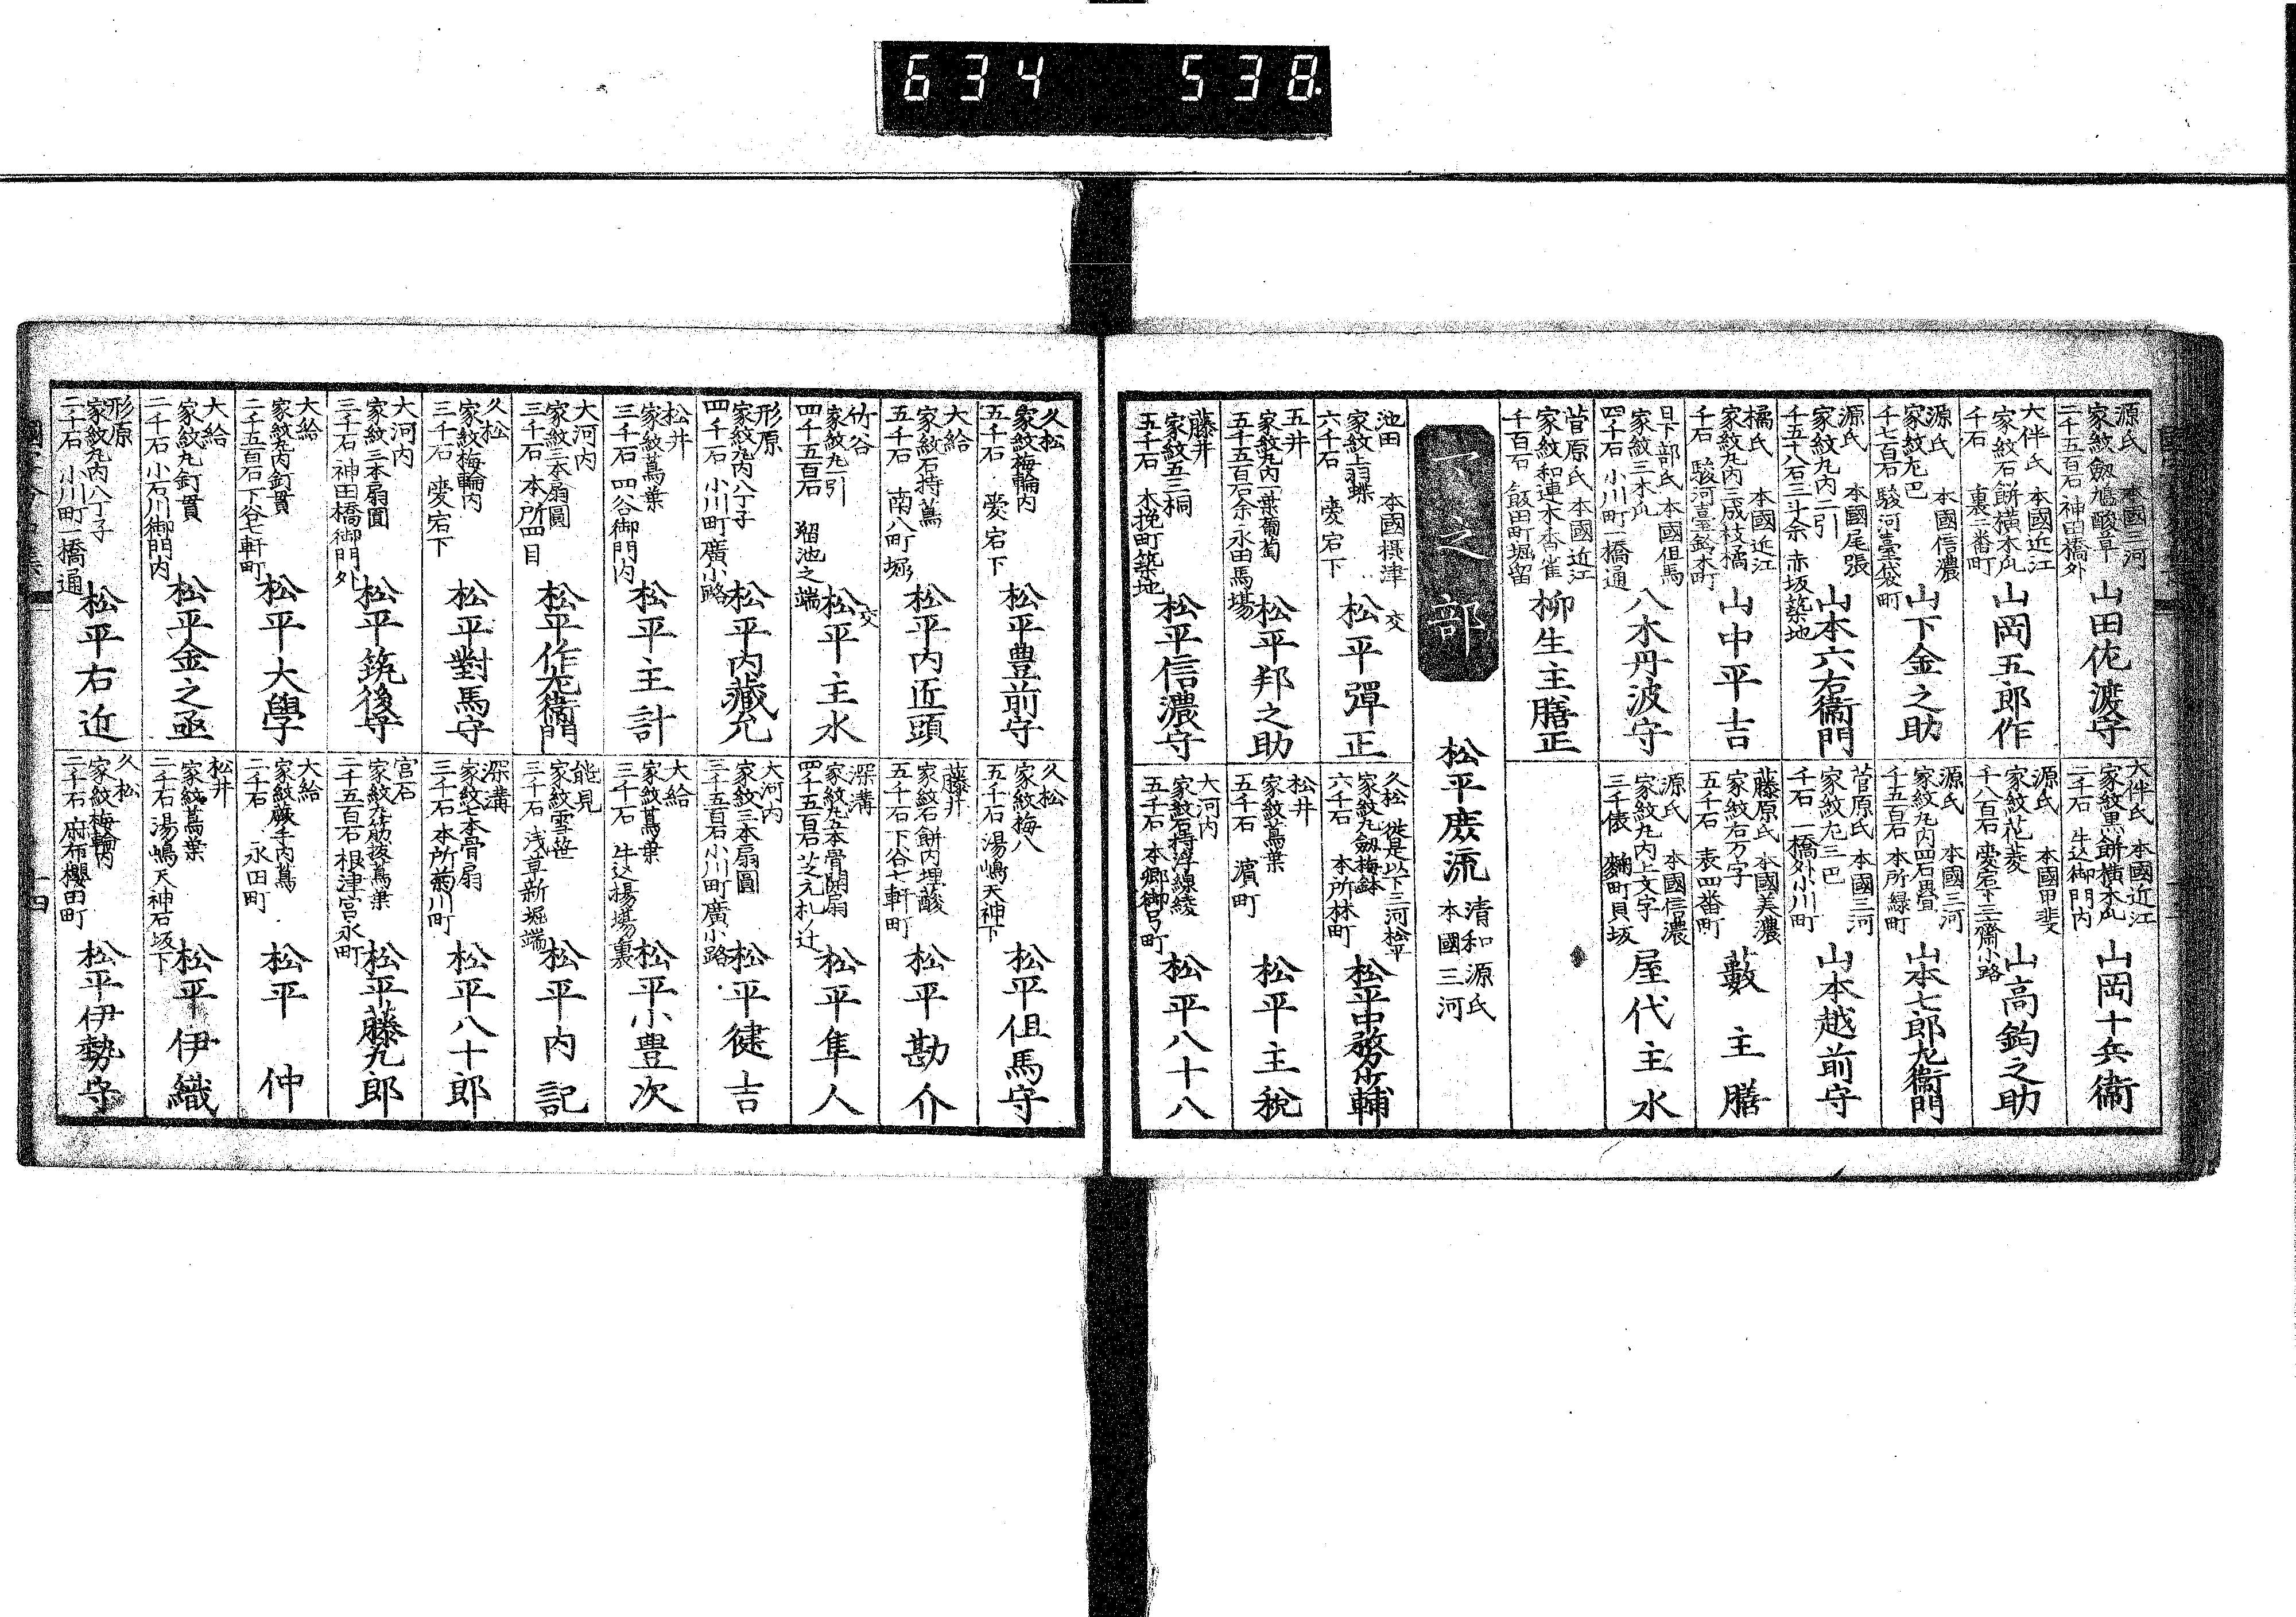 634 538.
源氏 本國三河
家紋劔鳩酸草
二千五百石 神田橋外
山田佐渡守
大伴氏 本國近江
家紋石餅横木瓜
千石 裏二番町
山岡五郎作
源氏 本國信濃
家紋左巴
千七百石 駿河臺袋町
山下金之助
源氏 本國尾張
家紋丸内二引
千五十八石三斗余 赤坂築地
山本六右衞門
橘氏 本國近江
家紋丸内三成枝橘
千石 駿河臺鈴木町
山中平吉
日下部氏 本國但馬
家紋三木瓜
四千石 小川町一橋通
八木丹波守
菅原氏 本國近江
千百石 飯田町堀留
柳生主膳正
大伴氏 本國近江
家紋黒餅横木瓜
二千石 牛込御門内
山岡十兵衞
源氏 本國甲斐
家紋花菱
千八百石 愛宕下三齋小路
山高鈞之助
源氏 本國三河
家紋丸内四石疊
千五百石 本所緑町
山本七郎左衞門
菅原氏 本國三河
家紋左三巴
千石 一橋外小川町
山本越前守
藤原氏 本國美濃
家紋右万字
五千石 表四番町
藪主膳
源氏 本國信濃
家紋丸内上文字
三千俵 麹町貝坂
屋代主水
マ之部
松平庶流 清和源氏
本國三河
池田 本國摂津
家紋上羽蝶
六千石 愛宕下
交
松平彈正
五井
家紋丸内一葉葡萄
五千五百石余 永田馬場
松平邦之助
藤井
家紋五三桐
五千石 木挽町築地
松平信濃守
久松 従是以下三河松平
家紋丸劔梅鉢
六千石 本所林町
松平中務少輔
松井
家紋蔦葉
五千石 濱町
松平主税
大河内
家紋石持浮線綾
五千石 本郷御弓町
松平八十八
久松
家紋梅輪内
五千石 愛宕下
松平豊前守
大給
家紋石持蔦
五千石 南八町堀
松平内近頭
竹谷
家紋丸引
四千五百石 溜池之端
交
松平主水
形原
家紋丸内八丁子
四千石 小川町廣小路
松平内藏允
松井
家紋蔦葉
三千石 四谷御門内
松平主計
大河内
家紋三本扇圓
三千石 本所四目
松平作左衞門
久松
家紋梅輪内
三千石 愛宕下
松平對馬守
大河内
家紋三本扇圓
三千石 神田橋御門外
松平筑後守
大給
家紋丸内釘貫
二千五百石 下谷七軒町
松平大學
大給
家紋丸釘貫
二千石 小石川御門内
松平金之丞
形原
家紋丸内八丁子
二千石 小川町一橋通
松平右近
久松
家紋梅八
五千石 湯嶋天神下
松平但馬守
藤井
家紋石餅内埋酸
五千石 下谷七軒町
松平勘介
深溝
家紋丸五本骨開扇
四千五百石 芝元札ノ辻
松平隼人
大河内
家紋三本扇圓
三千五百石 小川町廣小路
松平健吉
大給
家紋蔦葉
三千石 牛込揚場裏
松平小豊次
能見
家紋雪笹
三千石 浅草新堀端
松平内記
深溝
家紋七本骨扇
三千石 本所菊川町
松平八十郎
宮石
家紋左筋抜蔦葉
二千五百石 根津宮永町
松平藤九郎
大給
家紋蕨手内蔦
二千石 永田町
松平仲
松井
家紋蔦葉
二千石 湯嶋天神石坂下
松平伊織
久松
家紋梅輪内
二千石 麻布櫻田町
松平伊勢守
十四